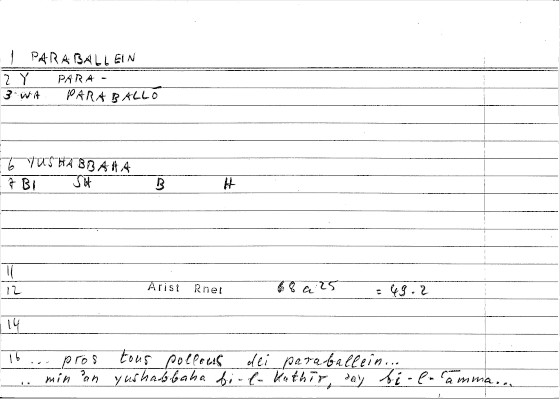 1 PARABALLEIN
2 Y PARA-
3 WA PARABALLŌ
6 YUSHABBAHA
7 BI SH B H
11
12 Arist Rhet 68 a 25 = 49.2
14
16 ... pros tous pollous dei paraballein...
.. min ʾan yushabbaha bi-l-kathīr, ʾay bi-l-ʿāmma...